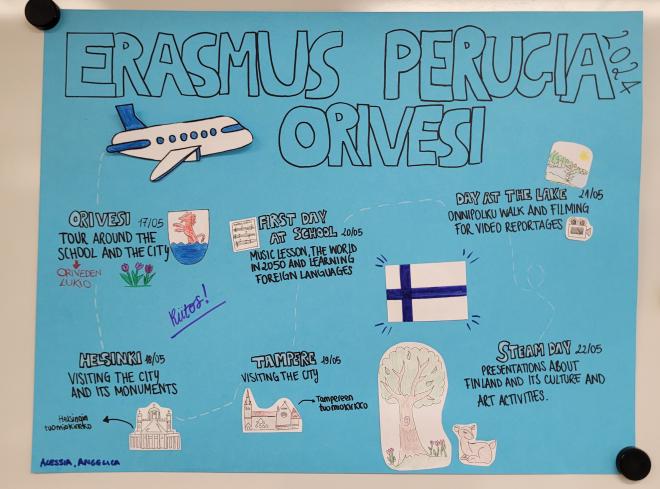 ERASMUS PERUGIA 2024
ORIVESI
ORIVESI 17/05
TOUR AROUND THE
SCHOOL AND THE CITY
ORIVEDEN
LUKIO
HELSINKI 18/05
VISITING THE CITY
AND ITS MONUMENTS
Helsingin
tuomiokirkko
TAMPERE 19/05
VISITING THE CITY
Tampereen
tuomiokirkko
FIRST DAY
AT SCHOOL 20/05
MUSIC LESSON, THE WORLD
IN 2050 AND LEARNING
FOREIGN LANGUAGES
DAY AT THE LAKE 21/05
ONNIPOLKU WALK AND FILMING
FOR VIDEO REPORTAGES
STEAM DAY 22/05
PRESENTATIONS ABOUT
FINLAND AND ITS CULTURE AND
ART ACTIVITIES.
Kiitos!
ALESSIA, ANGELICA